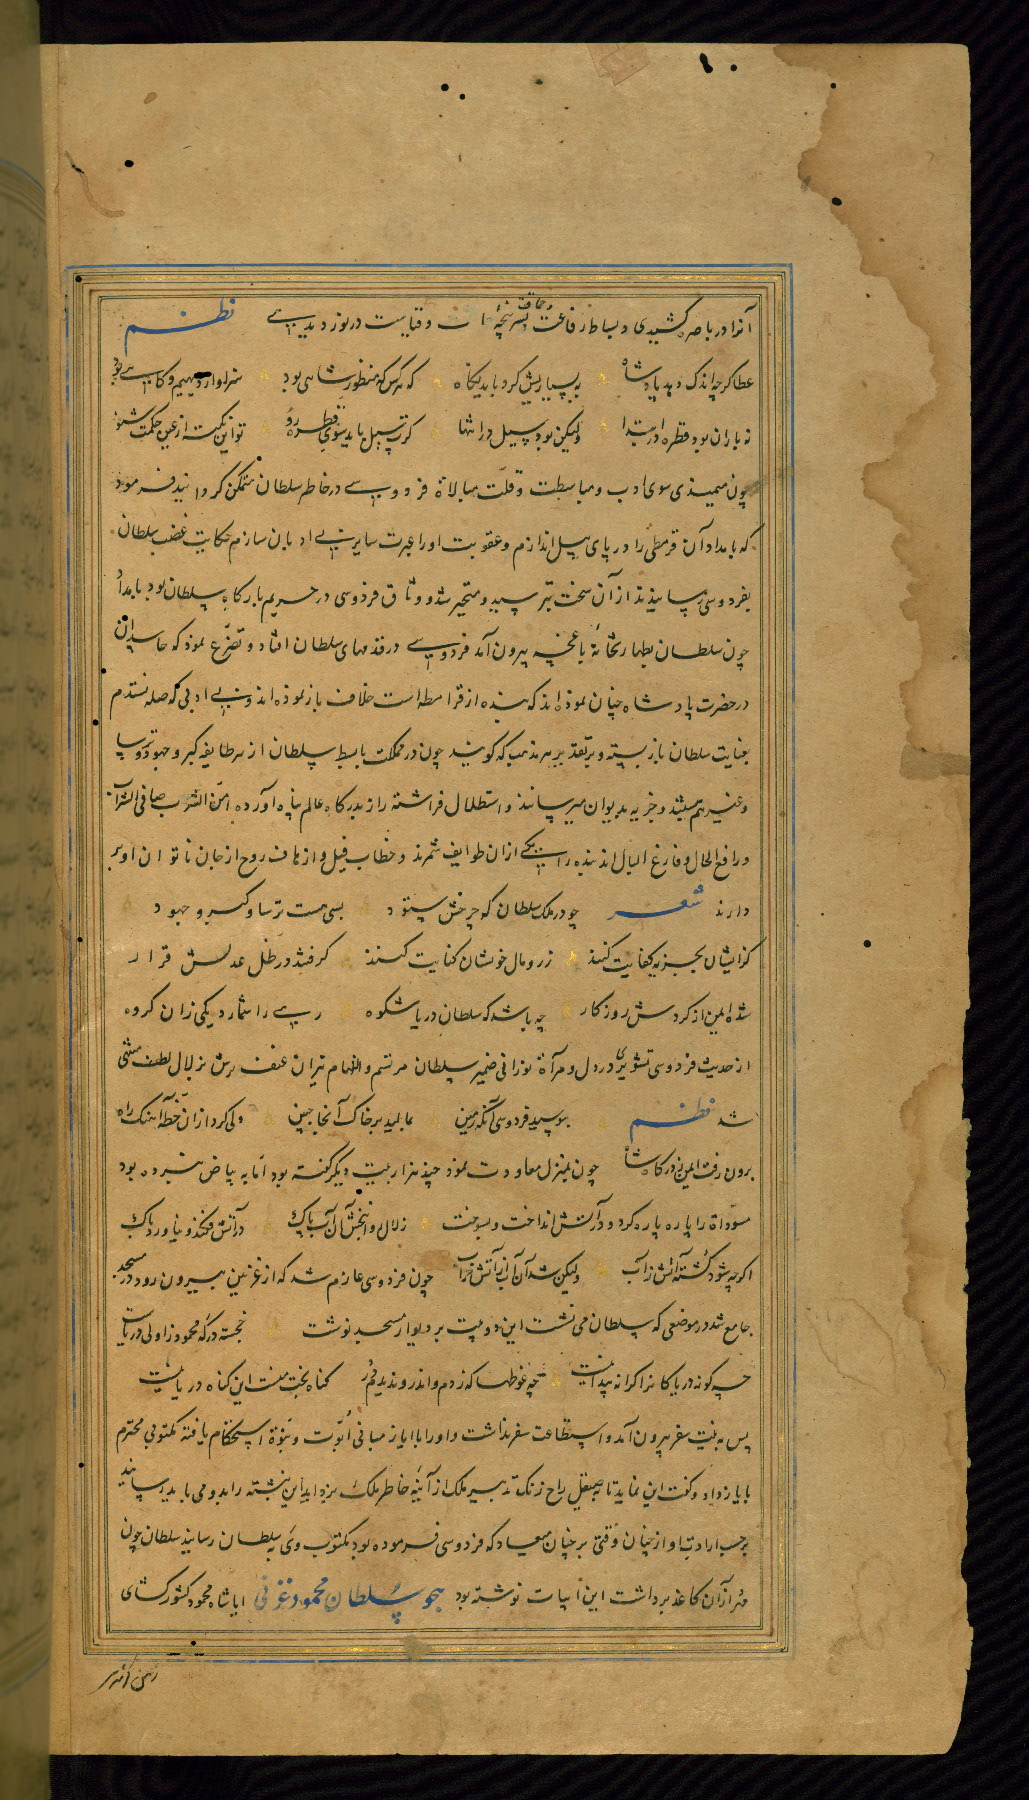 آنرا در باصره کشیدی و بساط رفاعت و حماقت در نوردیدی نظم
عطا کرچه اندک دهد پادشاه به بسیاریش کرد باید نکاه که هرکس که منظور شاهی بود سزاوار دیهیم و کاهی بود
نه باران بود قطره در ابتدا ولیکن بود سیل در انتها کرت سیل باید سوی قطره رو تو این نکته از عین حکمت شنو
چون میمندی سوی ادب و مباسطت و قلت مبالاة فردوسی در خاطر سلطان متمکن کردانید فرمود
که بامداد آن قرمطی را در پای پیل اندازم و عقوبت او را عبرت سایر بی ادبان سازم حکایت غضب سلطان
بفردوسی رسانیدند از آن سخت بترسید و متحیر شد و وثاق فردوسی در حریم بارکاه سلطان بود بامداد
چون سلطان بطهارتخانهٔ باغچه بیرون آمد فردوسی در قدمهای سلطان افتاد و تضرع نمود که حاسدان
در حضرت پادشاه چنان نموده اند که بنده از قرامطه است خلاف باز نموده اند و بی ادبی که صله نستدم
بعنایت سلطان باز بسته و بر تقدیر هر مذهب که کویند چون در مملکت بسیط سلطان از هر طایفه کبر و جهود و ترسا
و غیر هم هستند و جزیه بدیوان میرسانند و استظلال فراشته را از بدرکاه عالم پناه آورده امن الشرب صافی الشراب
و رافع الحال و فارغ البال اند بنده را یکی ازان طوایف شمرند و خطاب قیل و ازهاف روح از جان ناتوان او بر
دارند شعر چو در ملک سلطان که چرخش ستود بسی هست ترسا و کبر و جهود
کزایشان بجزیه کفایت کنند زر و مال خوشان کنایت کنند کرفتند در ظل عدلش قرار
شده ایمن از کردش روزکار چه باشد که سلطان دریا شکوه رهی را شمارد یکی زان کروه
از حدیث فردوسی تشویری در دل و مرآة نورانی ضمیر سلطان مرتسم و التهام نیران عنف برش بزلال لطف منثنی
شد نظم ببوسید فردوسی آنکه زمین بمالید بر خاک آنجا جبین ولی کرد ازان خطه آهنک راه
برون رفت ایمن ز درکاه شاه چون بمنزل معاودت نمود چند هزار بیت دیکر کفته بود اما به بیاض نبرده بود
مسوداة را پاره پاره کرد و در آتش انداخت و بسوخت زلال روانبخش آن آب پاک در آتش فکند و نیاورد باک
اکرچه شود کشته آتش ز آب ولیکن شد آن آب از آتش خراب چون فردوسی عازم شد که از غزنین بیرون رود در مسجد
جامع شد در موضعی که سلطان می نشست این دو بیت بر دیوار مسجد نوشت خجسته درکه محمود زاولی دریاست
چه کونه دریا کانرا کرانه پیدا نیست چه غوطها که زدم واندرو ندیدم در کناه بخت منست این کناه دریا نیست
پس به نیت سفر بیرون آمد و استطاعت سفر نداشت و او را با ایاز مبانی ابوت و بنوة استحکام یافته مکتوبی محترم
بایاز داد و کفت این نماید تا به صیقل راح زنک تدبیر ملک از آئینهٔ خاطر ملک بزداید این نبشته را بدو می باید رسانید
بر حسب ارادت او از چنان وقتی بر چنان میعاد که فردوسی فرموده بود مکتوب وی به سلطان رسانید سلطان چون
مهر از آن کاغذ برداشت این ابیات نوشته بود هجو سلطان محمود غزنوی ایا شاه محمود کشور کشای